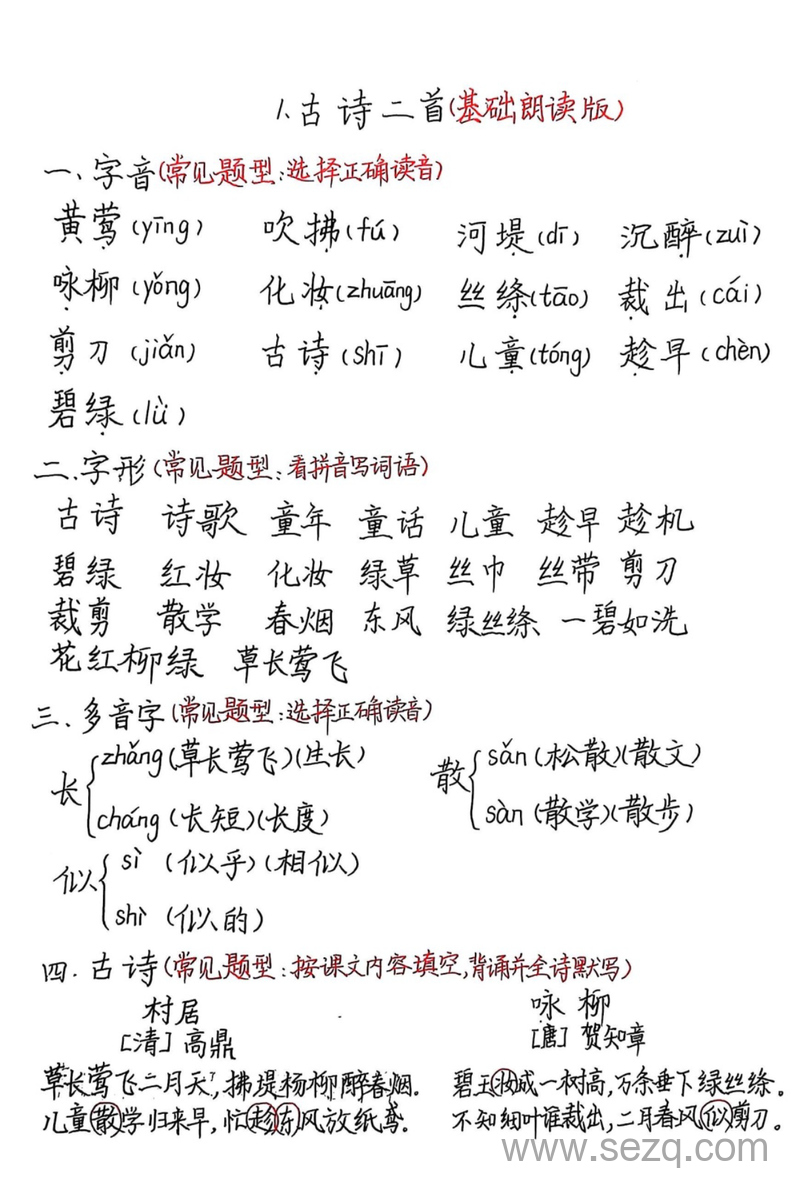 1.古诗二首(基础朗读版)
一、字音(常见题型:选择正确读音)
黄莺(yīng) 吹拂(fú) 河堤(dī) 沉醉(zuì)
咏柳(yǒng) 化妆(zhuāng) 丝绦(tāo) 裁出(cái)
剪刀(jiǎn) 古诗(shī) 儿童(tóng) 趁早(chèn)
碧绿(lǜ)
二.字形(常见题型:看拼音写词语)
古诗 诗歌 童年 童话 儿童 趁早 趁机
碧绿 红妆 化妆 绿草 丝巾 丝带 剪刀
裁剪 散学 春烟 东风 绿丝绦 一碧如洗
花红柳绿 草长莺飞
三.多音字(常见题型:选择正确读音)
长 zhǎng(草长莺飞)(生长)
cháng(长短)(长度)
散 sǎn(松散)(散文)
sàn(散学)(散步)
似 sì(似乎)(相似)
shì(似的)
四.古诗(常见题型:按课文内容填空,背诵并全诗默写)
村居
[清]高鼎
草长莺飞二月天,拂堤杨柳醉春烟.
儿童散学归来早,忙趁东风放纸鸢.
咏柳
[唐]贺知章
碧玉妆成一树高,万条垂下绿丝绦.
不知细叶谁裁出,二月春风似剪刀.
www.sezq.com